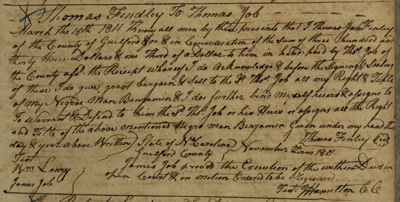 Thomas Findley To Thomas Job
March the 15th 1811 Know all men by these presents that I Thomas Finley
of the County of Guilford for & in Consideration of the sum of three Hundred and
thirty three Dollars & one Third of a Dollar to him in hand paid by Thos Job of
the County afsd the Receipt whereof I do Acknowledge & before the Signing & Sealing
of these I do give grant bargain & sell to the Sd Thos Job all my Right & Title
of my Negroe Man Benjamin & I do further bind my self heirs & assigns to
To Warrant & Defend to him the Sd Thos Job or his Heirs or assigns all the Right
and Title of the above mentioned negroe man Benjamin Given under my hand this
day & year above Written
Thomas Finley Seal
State of No Carolina
Guilford County
November Term 1811
Test
Wm Lowry
James Job
James Job proved the Execution of the within Deed in
open Court & on motion Ordered to be Registered
Test Hamilton CC